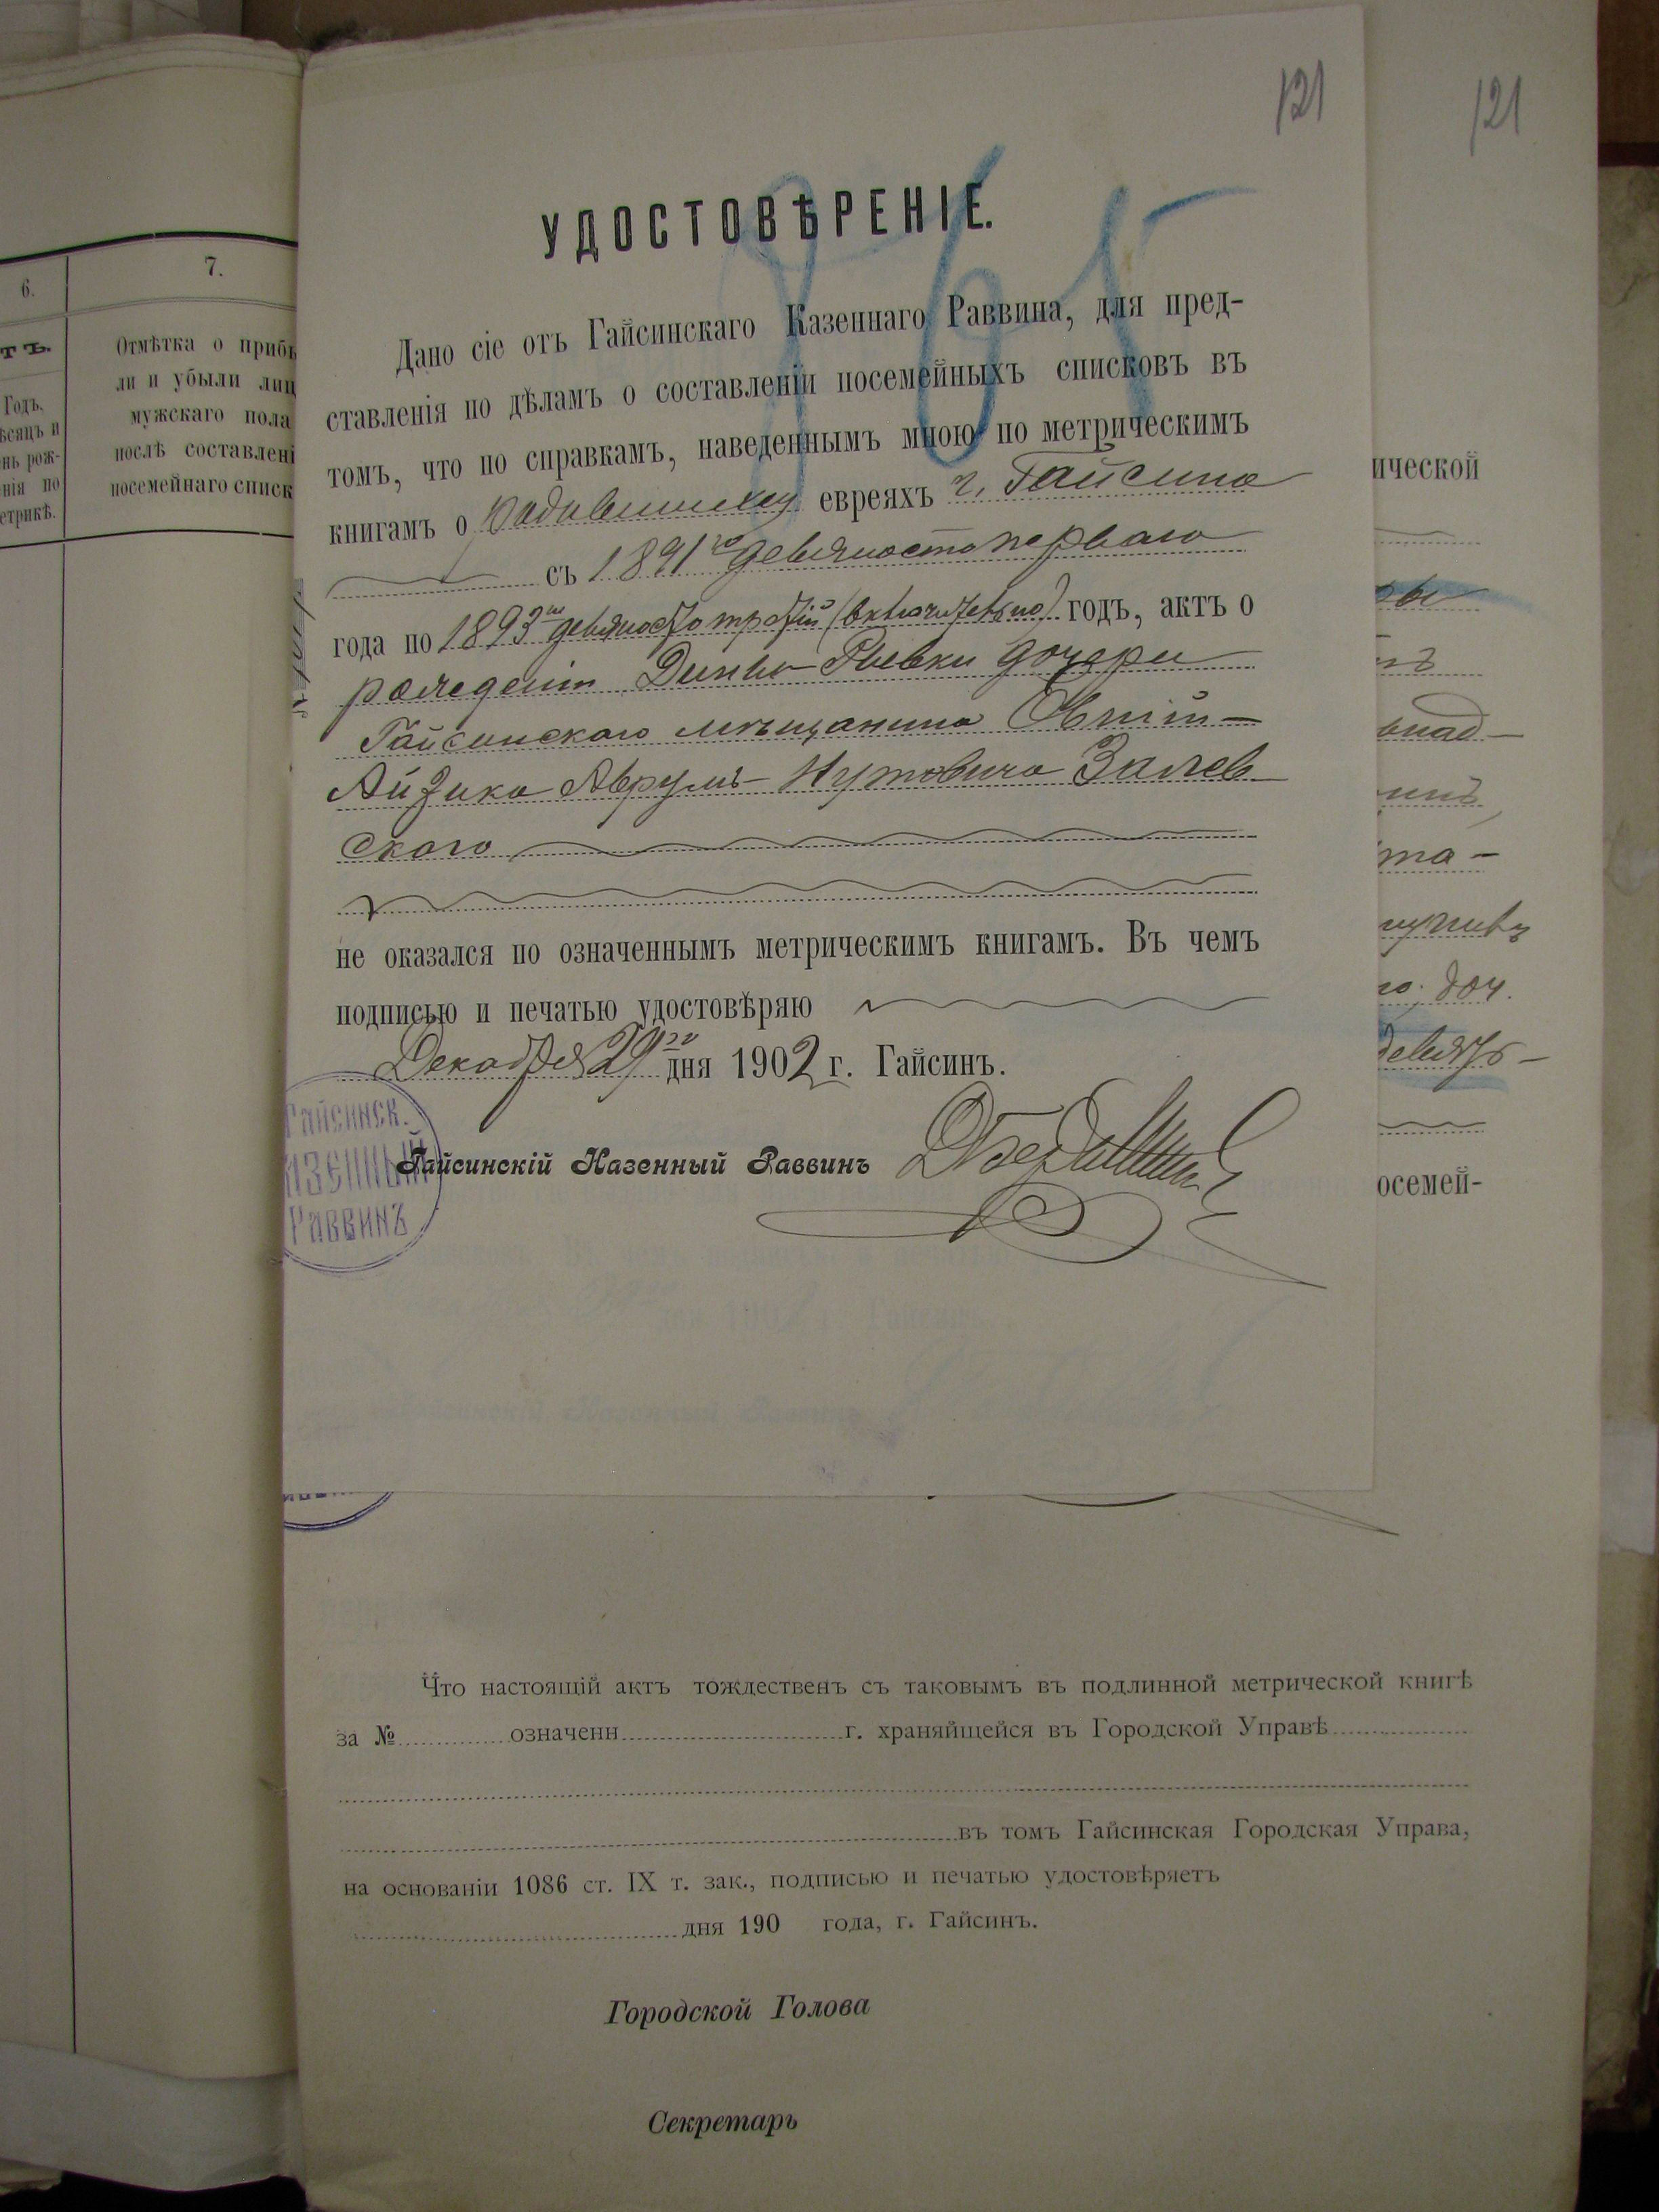 121
121
865
УДОСТОВѢРЕНІЕ.
Дано сіе отъ Гайсинскаго Казеннаго Раввина, для пред-
ставленія по дѣламъ о составленіи посемейныхъ списковъ въ
томъ, что по справкамъ, наведеннымъ мною по метрическимъ
книгамъ о родившихся евреяхъ г. Гайсина
съ 1891го девяносто перваго
года по 1893ій девяносто третій (включительно) годъ, актъ о
рожденіи Ривки дочери
Гайсинскаго мѣщанина
Айзика Аврумъ-Нутовича Залев
ского
не оказался по означеннымъ метрическимъ книгамъ. Въ чемъ
подписью и печатью удостовѣряю
Декабря 29го дня 1902 г. Гайсинъ.
Гайсинскій Казенный Раввинъ
Гайсинск.
Раввинъ
6.
7.
тъ.
Отмѣтка о прибы
ли и убыли лиц
мужскаго пола
послѣ составлені
посемейнаго списк
Годъ,
ѣсяцъ и
нь рож-
нія по
етрикѣ.
ической
та-
го. доч.
девять-
осемей-
Что настоящій актъ тождественъ съ таковымъ въ подлинной метрической книгѣ
за № означенн г. храняйщейся въ Городской Управѣ
въ томъ Гайсинская Городская Управа,
на основаніи 1086 ст. IX т. зак., подписью и печатью удостовѣряетъ
дня 190 года, г. Гайсинъ.
Городской Голова
Секретарь